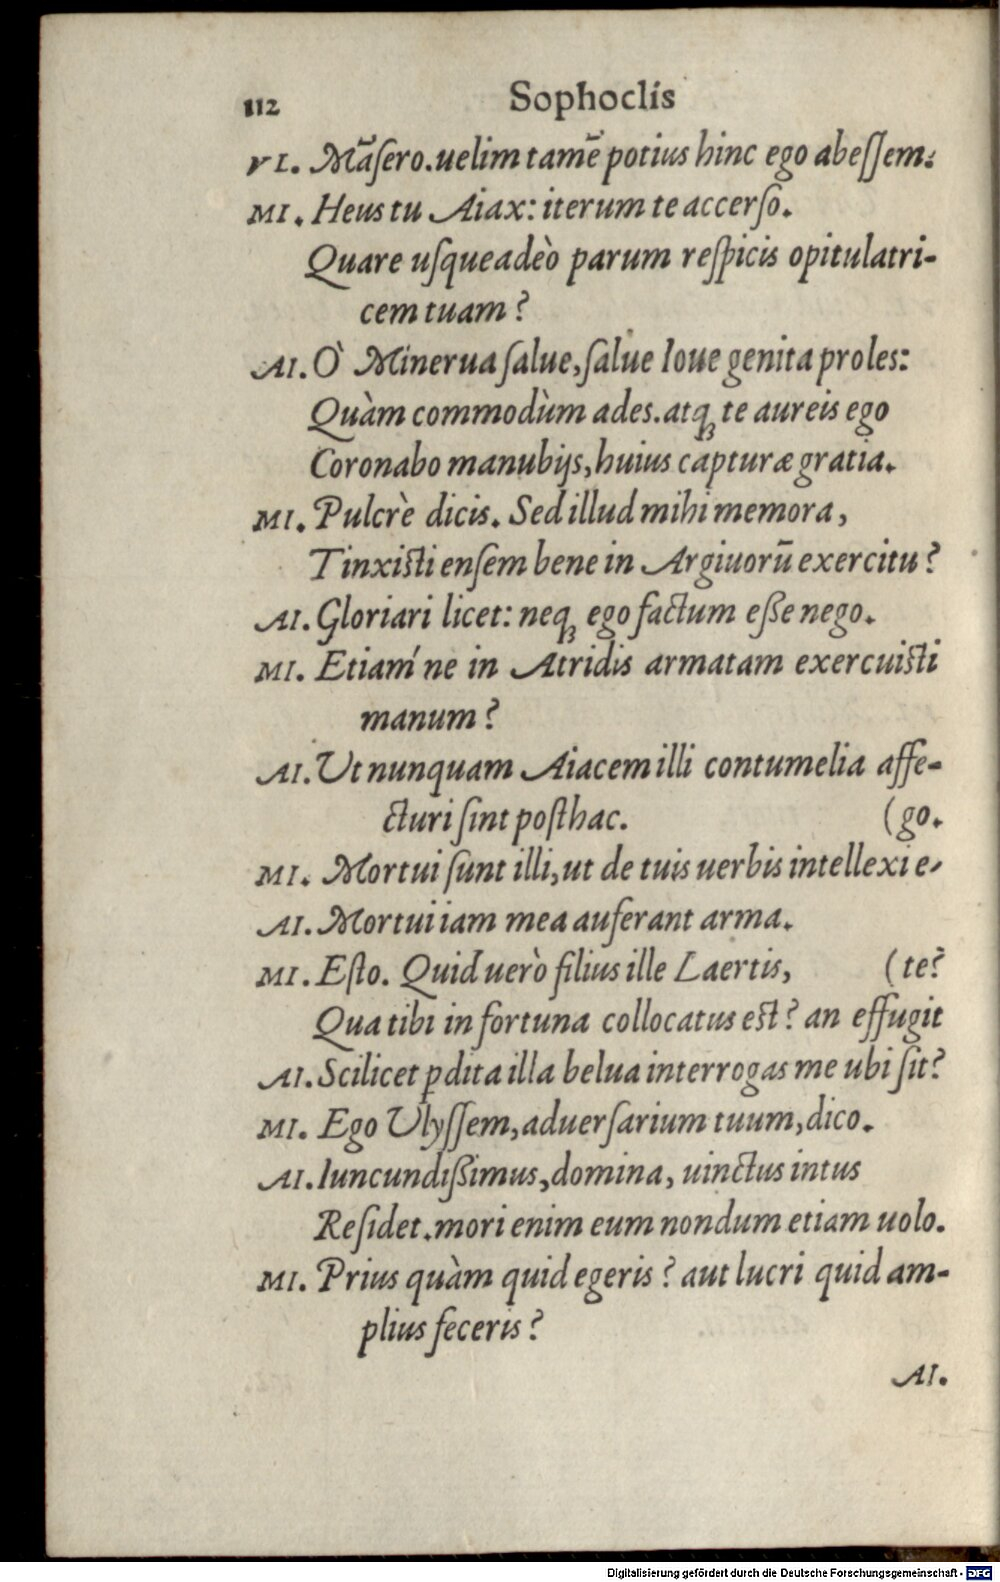 112 Sophoclis
VI. Mãsero.uelim tamẽ potius hinc ego abessem:
MI. Heus tu Aiax: iterum te accerso.
Quare usqueadeò parum respicis opitulatri-
cem tuam?
AI. Ò Minerua salue, salue Ioue genita proles:
Quàm commodùm ades. atqꝫ te aureis ego
Coronabo manubijs, huius capturæ gratia.
MI. Pulcrè dicis. Sed illud mihi memora,
Tinxisti ensem bene in Argiuorũ exercitu?
AI. Gloriari licet: neqꝫ ego factum eße nego.
MI. Etiaḿne in Atridis armatam exercuisti
manum?
AI. Ut nunquam Aiacem illi contumelia affe-
cturi sint posthac. (go.
MI. Mortui sunt illi, ut de tuis uerbis intellexi e-
AI. Mortui iam mea auferant arma.
MI. Esto. Quid uerò filius ille Laertis, (te?
Qua tibi in fortuna collocatus est? an effugit
AI. Scilicet ꝑdita illa belua interrogas me ubi sit?
MI. Ego Ulyssem, aduersarium tuum, dico.
AI. Iuncundißimus, domina, uinctus intus
Residet. mori enim eum nondum etiam uolo.
MI. Prius quàm quid egeris? aut lucri quid am-
plius feceris?
AI.
Digitalisierung gefördert durch die Deutsche Forschungsgemeinschaft - DFG